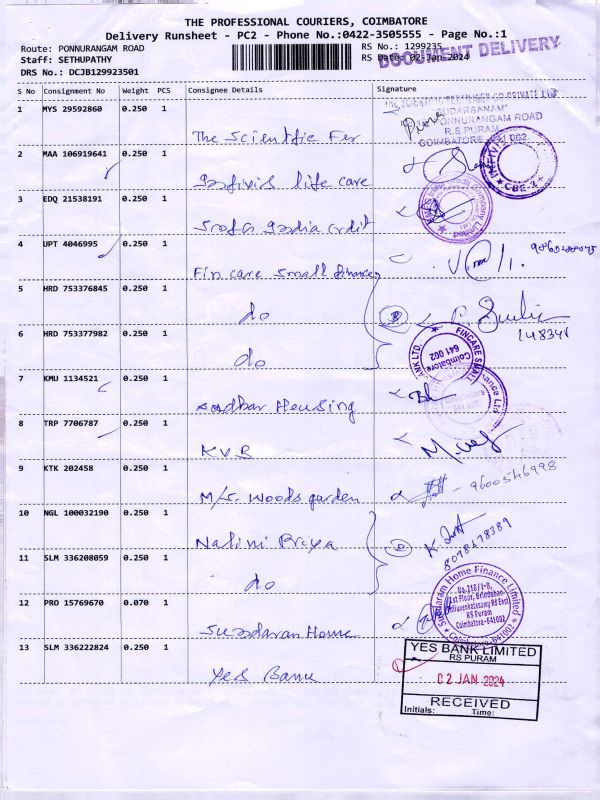 THE PROFESSIONAL COURIERS, COIMBATORE
Delivery Runsheet - PC2 - Phone No.:0422-3505555 - Page No.:1
Route: PONNURANGAM ROAD
RS No.: 1299235
Staff: SETHUPATHY
RS Date: 02-Jan-2024
DOCUMENT DELIVERY
DRS No.: DCJB129923501
S No Consignment No Weight PCS Consignee Details Signature
1 MYS 29592860 0.250 1 The Scientific Fer
"SUDARSANAM"
PONNURANGAM ROAD
R.S.PURAM
COIMBATORE
2 MAA 106919641 0.250 1 life care
CBE-2
3 EDQ 21538191 0.250 1 India Credit
4 UPT 4046995 0.250 1 Fin care Small finance
5 HRD 753376845 0.250 1 do
6 HRD 753377982 0.250 1 do
FINCARE SMALL
BANK LTD.
Coimbatore
641 002
7 KMU 1134521 0.250 1 Aadhar Housing
8 TRP 7706787 0.250 1 KVB
9 KTK 202458 0.250 1 M/s. Woods garden
9600546998
10 NGL 100032190 0.250 1 Nalini Priya
8098678389
11 SLM 336208059 0.250 1 do
12 PRO 15769670 0.070 1 Sundaram Home
Sundaram Home Finance Limited
No.218/1-8,
1st Floor, Brindavan,
Thiruvenkatasamy Rd East,
RS Puram
Coimbatore-641002
Coimbatore-641002
13 SLM 336222824 0.250 1 Yes Bank
YES BANK LIMITED
RS PURAM
02 JAN 2024
RECEIVED
Initials: Time: